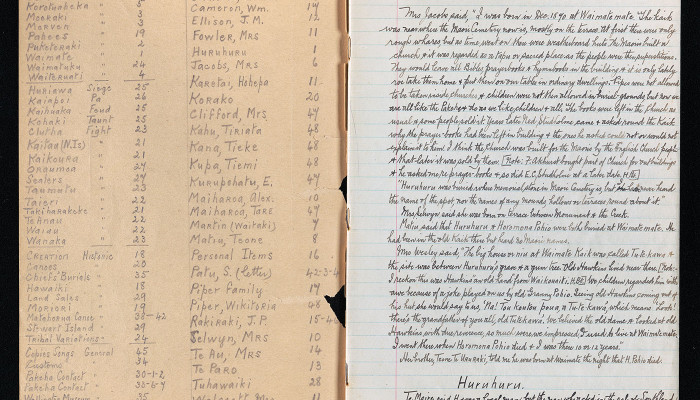 Korotuaheka " 5
Moeraki " 3
Merven " 3
Pukeraki " 19
Puketeraki " 2
Waimate " 1
Waimataka " 24
Waiteruati " 4
Huriawa Siege 25
Kaiapoi Pa 26
Kaihuaka Feud 25
Kohaki Taunt 25
Clutha Fight 23
Kaitaa (N.Is) " 21
Kaikoura " 21
Orauman " 27
Sealers " 24
Taumutu " 23
Taieri " 22
Takiharakeke " 21
Te Anau " 22
Waiau " 22
Wanaka " 23
Creation Hataric 18
Canoes 20
Chiefs Burials " 35
Hawaiki " 18
Land Sales " 29
Moriori " 19
Matahaera Canoe " 38-42
Stewart Island 29
Tribal Variations " 24
Copies Songs General 45
Customs 34
Pakeha Contact " 30-1-2
Pakeha Contact " 33-6-4
Cameron, Wm. 14
Ellison, J.M. 12
Fowler, Mrs 11
Huruhuru 1
Jacobs, Mrs 6
Karetai, Hohepa 11
Korako 20
Clifford, Mrs 47
Kahu, Tiriata 48
Kana, Tieke 48
Kupa, Tiemi 48
Kurupohatu, E. 47
Maiharoa, Alex. 10
Maiharoa, Tare 47
Martin (Waitaki) 7
Matiu, Teone 8
Personal Items 16
Patu, S. (Letter) 42-3-4
Piper Family 17
Piper, Wikitoria 48
Rakiraki, J.P. 15-40
Selwyn, Mrs 10
Te Au, Mrs 14
Te Paro 13
Tuhawaiki 28
Mrs Jacobs said, "I was born in Dec. 1840 at Waimate mate. The kaik
was near where the Maori Cemetery now is, mostly on the terrace. At first there were only
rough whares but as time went on there were weatherboard huts. The Maoris built a
church & it was regarded as a tapu or sacred place as the people were then superstitious.
They would leave all Bibles, prayerbooks & hymnbooks in the building & it is only lately
we take them home & put them on our table in ordinary dwellings. Pipes were not allowed
to be taken inside churches & children were not then allowed in burial-grounds but now we
are all like the Pakeha & do as we like, children & all. The books were left in the church as
usual & some people sold it. Years later Nick Studholme came & asked round the Kaik
why the prayer-books had been left in building & the ones he asked could not or would not
explain it to him. I think the church was built for the Maoris by the English Church people
& that later it was sold by them. (Note: F. Akhurst bought part of Church for out buildings
& he asked more prayer-books & so did E.C. Studholme at a later date. H.B.)
"Huruhuru was buried where memorial stone in Maori Cemetery is, but I never heard
the name of the spot nor the names of any mounds hollows or terraces round about it."
Mrs Selwyn said she was born on terrace between Monument & the Creek.
Matiu said that Huruhuru & Horomona Pohio were both buried at Waimate mate. He
had been in the old Kaik there but heard no Maori names.
Mrs Wesley said, "The big house or runa at Waimate Kaik was called Tutekawa &
the site was between Huruhuru's grave & a gum tree Old Hawkins lived near there. (Note:
I reckon this was Hawkins an old hand from Waikouaiti. H.B.) We children regarded him with
awe because of a joke played on us by old Granny Pohio. Seeing old Hawkins coming out of
his hut she would say to us, 'Na! Tou koutou poua, a Tutekawa', which means 'Look!
there's the grandfather of you all, old Tutekawa.' We believed the old dame & looked at old
Hawkins with due reverence, so much were we impressed. I used to live at Waimatemate.
I went there when Horomona Pohio died & I was then 10 or 12 years."
Her brother, Teone Te Maraki, told me he was born at Waimate the night that H. Pohio died.
Huruhuru.